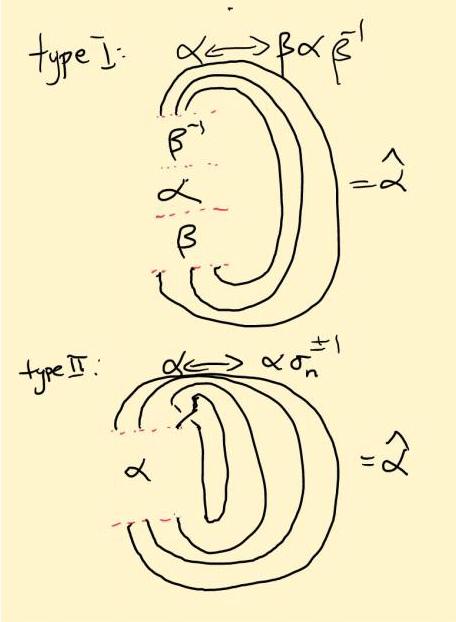 type I: α ⟷ βαβ⁻¹
β⁻¹
α
β
= α̂
type II: α ⟷ ασₙ^{±1}
α
= α̂